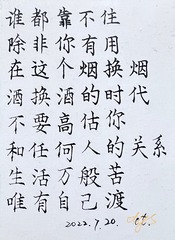 谁都靠不住
除非你有用
在这个烟换烟
酒换酒的时代
不要高估你
和任何人的关系
生活万般苦
唯有自己渡
2022.7.20.